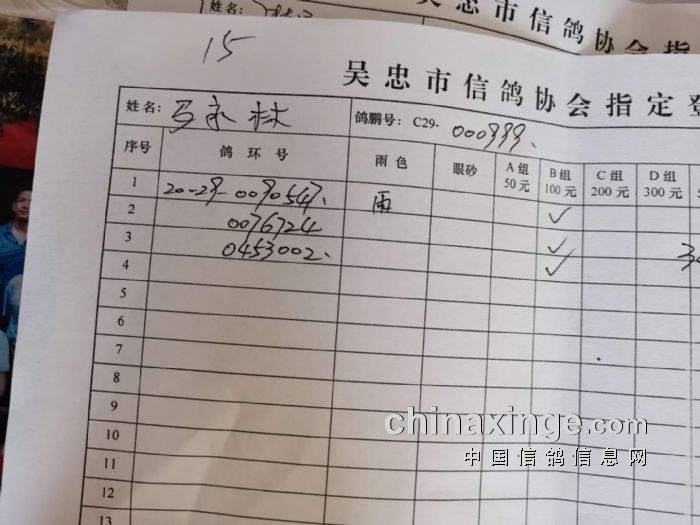 姓名:
吴忠市信鸽协会指
15
吴忠市信鸽协会指定登
姓名: 马永林 鸽鹏号: C29- 000999、
序号 鸽环号 雨色 眼砂 A组 50元 B组 100元 C组 200元 D组 300元
1 20-29-0090547、 雨 ✓
2 0076724 ✓
3 0453002、 ✓
4
5
6
7
8
9
10
11
12
13
chinaxinge.com
中国信鸽信息网